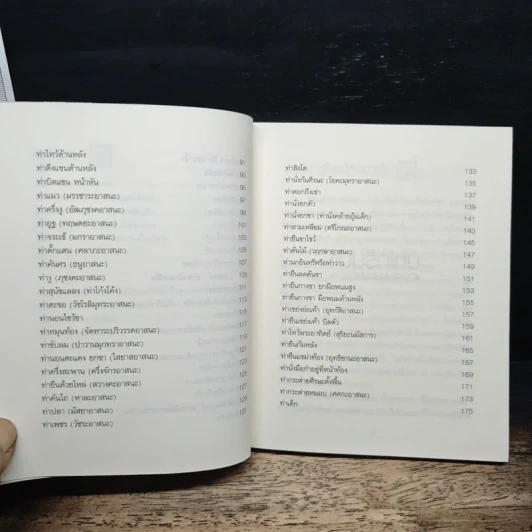 ท่าไหว้ด้านหลัง 91
ท่าดึงแขนด้านหลัง 93
ท่าบิดแขน หน้าหัน 95
ท่าแมว (มรรชาระอาสนะ) 97
ท่าครึ่งงู (อัสภุชงคะอาสนะ) 99
ท่าอูฐ (ทฤษตยะอาสนะ) 101
ท่าจระเข้ (มกราอาสนะ) 103
ท่าตั๊กแตน (ศลาภะอาสนะ) 105
ท่าคันศร (ธนูอาสนะ) 107
ท่างู (ภุชงคะอาสนะ) 109
ท่าสุนัขแลลง (ท่าโก้งโค้ง) 111
ท่าตะขอ (วัชโรลีมุทระอาสนะ) 113
ท่านอนไขว้ขา 115
ท่าหมุนท้อง (จัดทาระปริวรรตอาสนะ) 117
ท่าขับลม (ปาวานมุกทาอาสนะ) 119
ท่านอนตะแคง ยกขา (ไสยาสถอาสนะ) 121
ท่าครึ่งสะพาน (ครึ่งจักรอาสนะ) 123
ท่ายืนด้วยไหล่ (สวางคะอาสนะ) 125
ท่าคันไถ (หาละอาสนะ) 127
ท่าปลา (มัสยาอาสนะ) 129
ท่าเพชร (วัชระอาสนะ) 131
ท่าสิงโต 133
ท่านั่งก้มศีรษะ (โยคะมุทราอาสนะ) 135
ท่าศอกถึงเข่า 137
ท่านั่งยกตัว 139
ท่านั่งยกขา (ท่านั่งคล้ายอุ้มเด็ก) 141
ท่าสามเหลี่ยม (ตรีโกณะอาสนะ) 143
ท่ายืนขาไขว้ 145
ท่าต้นไม้ (พฤกษาอาสนะ) 147
149
ท่ายืนลดต้นขา 151
ท่ายืนกางขา ยกมือพนมสูง 153
ท่ายืนกางขา มือพนมด้านหลัง 155
ท่าเขย่งย่อเท้า (อุทกัติอาสนะ) 157
ท่ายืนเขย่งเท้า บิดตัว 159
ท่าไหว้พระอาทิตย์ (สุริยะนมัสการ) 161
ท่ายืนก้มหลัง 163
ท่ายืนแขม่วท้อง (อุทธิยานะอาสนะ) 165
ท่านั่งมือก่ายอยู่ที่หน้าท้อง 167
ท่ากระต่ายศีรษะตั้งพื้น 169
ท่ากระต่ายหมอบ (ศศกะอาสนะ) 171
ท่าเด็ก 173
175